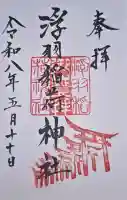 奉拝
浮羽稲荷神社
令和八年五月二十日